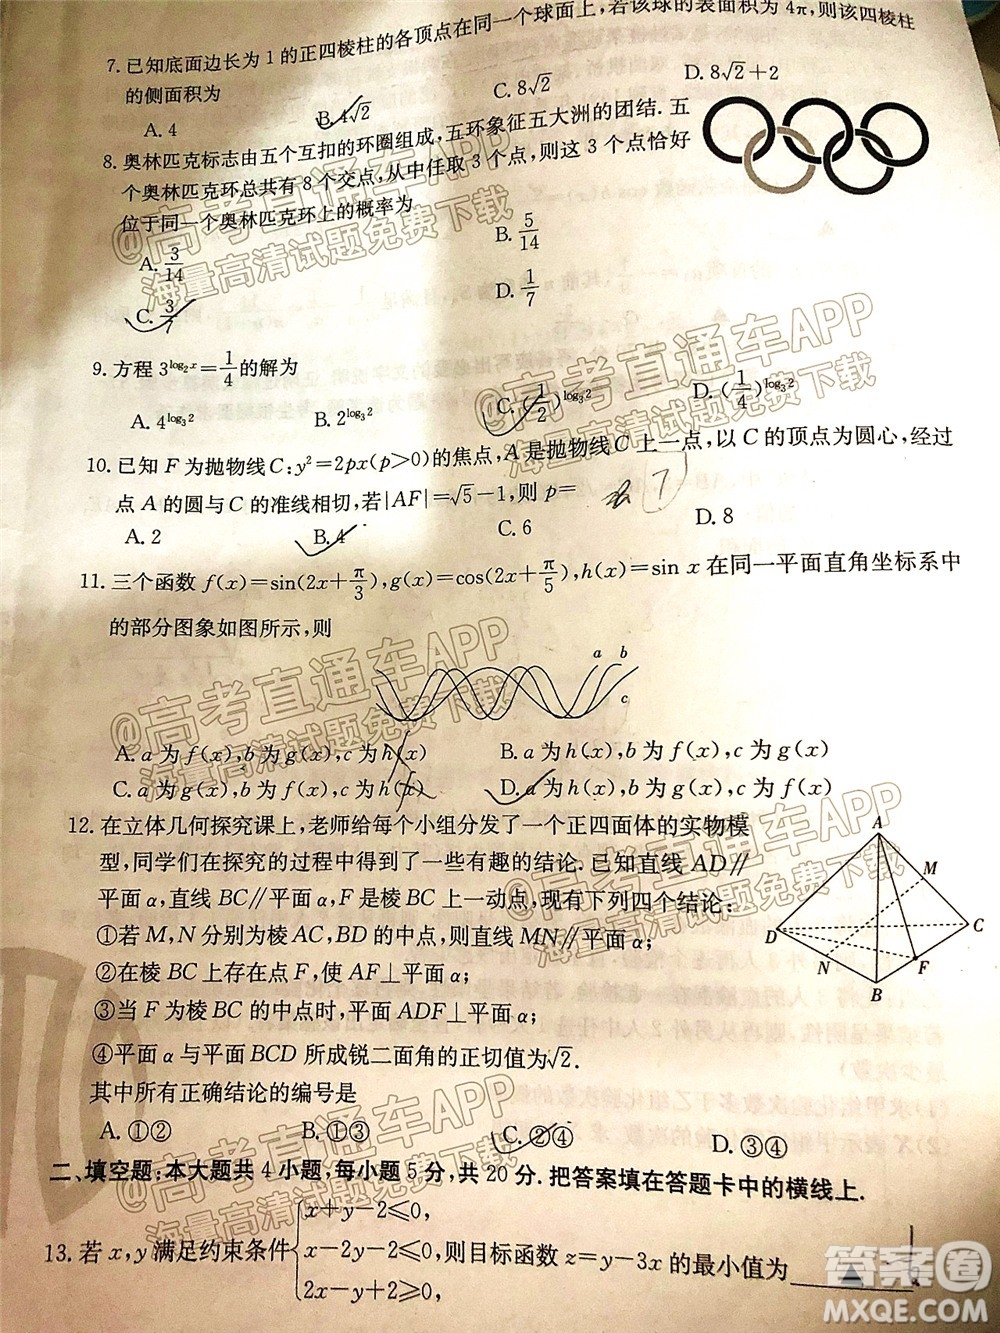 7. 已知底面边长为 1 的正四棱柱的各顶点在同一个球面上,若该球的表面积为 4π,则该四棱柱
的侧面积为
A. 4 B. 4√2 C. 8√2 D. 8√2+2
8. 奥林匹克标志由五个互扣的环圈组成,五环象征五大洲的团结. 五
个奥林匹克环总共有 8 个交点,从中任取 3 个点,则这 3 个点恰好
位于同一个奥林匹克环上的概率为
A. 3/14 B. 5/14
C. 3/7 D. 1/7
9. 方程 3^{log₂x}=1/4 的解为
A. 4^{log₃2} B. 2^{log₃2} C. (1/2)^{log₃2} D. (1/4)^{log₃2}
10. 已知 F 为抛物线 C:y²=2px(p>0)的焦点,A 是抛物线 C 上一点,以 C 的顶点为圆心,经过
点 A 的圆与 C 的准线相切,若|AF|=√5-1,则 p=
A. 2 B. 4 C. 6 D. 8
11. 三个函数 f(x)=sin(2x+π/3),g(x)=cos(2x+π/5),h(x)=sin x 在同一平面直角坐标系中
的部分图象如图所示,则
a b
c
A. a 为 f(x),b 为 g(x),c 为 h(x) B. a 为 h(x),b 为 f(x),c 为 g(x)
C. a 为 g(x),b 为 f(x),c 为 h(x) D. a 为 h(x),b 为 g(x),c 为 f(x)
12. 在立体几何探究课上,老师给每个小组分发了一个正四面体的实物模
型,同学们在探究的过程中得到了一些有趣的结论. 已知直线 AD∥
平面 α,直线 BC∥平面 α,F 是棱 BC 上一动点,现有下列四个结论:
①若 M,N 分别为棱 AC,BD 的中点,则直线 MN∥平面 α;
②在棱 BC 上存在点 F,使 AF⊥平面 α;
③当 F 为棱 BC 的中点时,平面 ADF⊥平面 α;
④平面 α 与平面 BCD 所成锐二面角的正切值为√2.
其中所有正确结论的编号是
A. ①② B. ①③ C. ②④ D. ③④
A
M
D
C
N
F
B
二、填空题:本大题共 4 小题,每小题 5 分,共 20 分. 把答案填在答题卡中的横线上.
13. 若 x,y 满足约束条件{x+y-2≤0, x-2y-2≤0, 2x-y+2≥0, 则目标函数 z=y-3x 的最小值为 ▲
@高考直通车APP
海量高清试题免费下载
@高考直通车APP
海量高清试题免费下载
@高考直通车APP
海量高清试题免费下载
@高考直通车APP
海量高清试题免费下载
@高考直通车APP
海量高清试题免费下载
答案圈
MXQE.COM